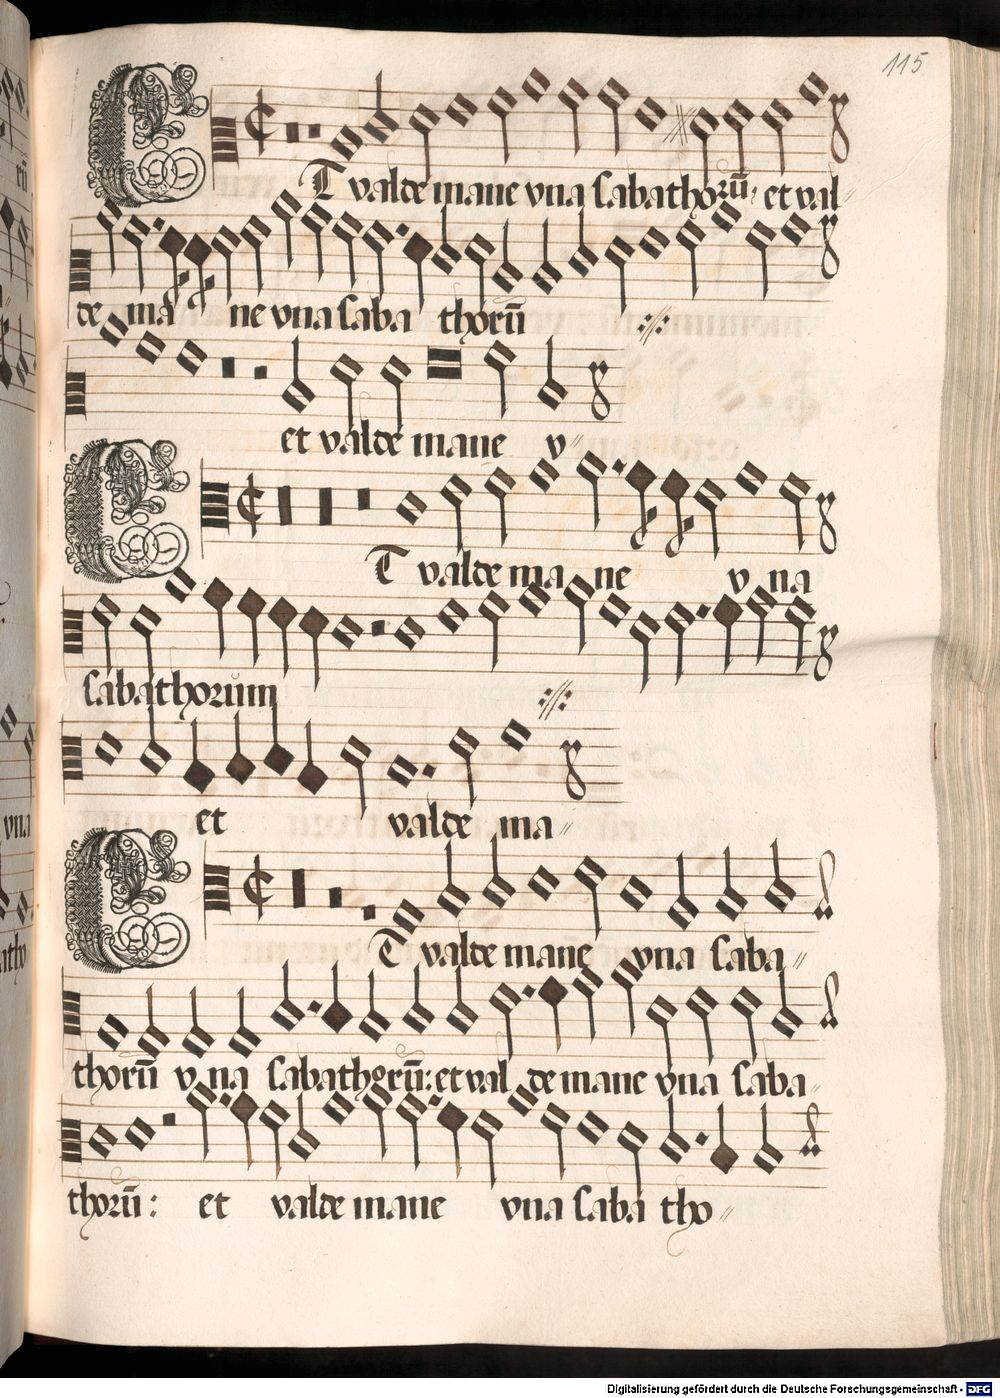 115
ET valde mane vna sabathorū: et val
de ma ne vna saba thorū
et valde mane v
ET valde ma ne v na
sabathorum
et valde ma
ET valde mane vna saba
thorū v na sabathorū: et val de mane vna saba
thorū: et valde mane vna saba tho
Digitalisierung gefördert durch die Deutsche Forschungsgemeinschaft - DFG